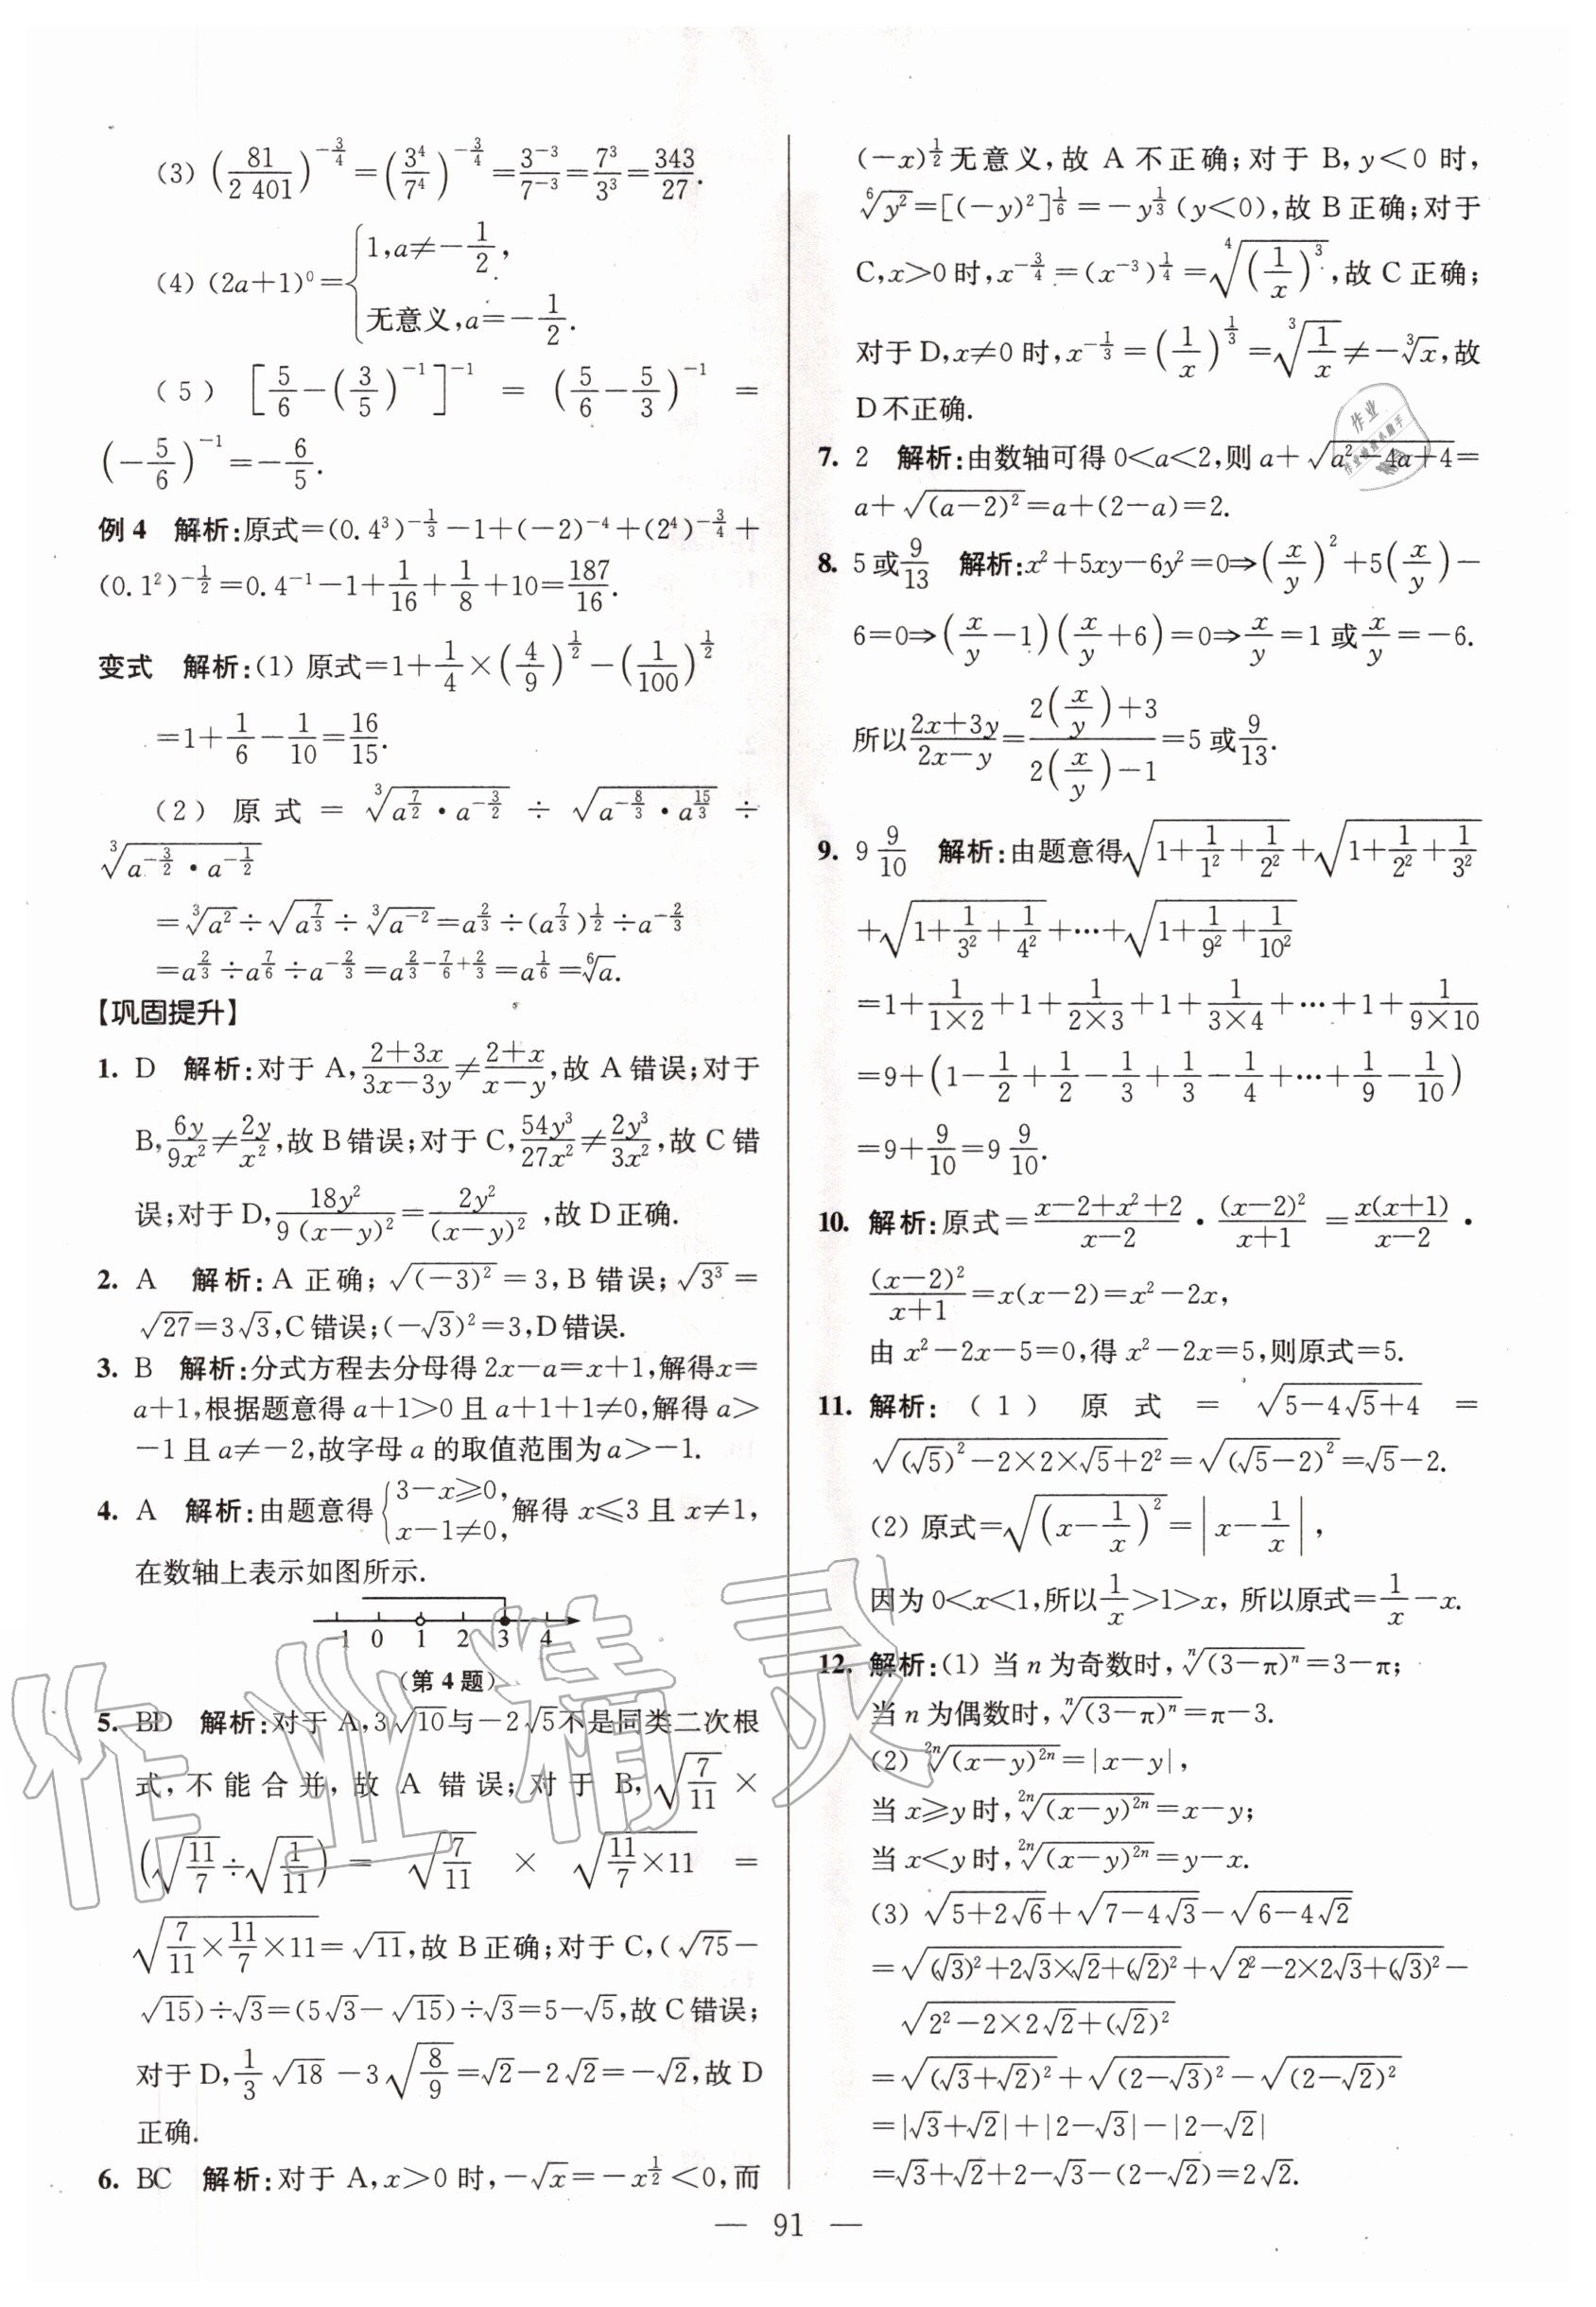 (3) (81/2 401)^{-3/4}=(3^4/7^4)^{-3/4}=3^{-3}/7^{-3}=7^3/3^3=343/27.
(4) (2a+1)^0={1,a≠-1/2,
无意义,a=-1/2.
(5) [5/6-(3/5)^{-1}]^{-1} = (5/6-5/3)^{-1} =
(-5/6)^{-1}=-6/5.
例4 解析:原式=(0.4^3)^{-1/3}-1+(-2)^{-4}+(2^4)^{-3/4}+
(0.1^2)^{-1/2}=0.4^{-1}-1+1/16+1/8+10=187/16.
变式 解析:(1) 原式=1+1/4×(4/9)^{1/2}-(1/100)^{1/2}
=1+1/6-1/10=16/15.
(2) 原式= ∛(a^{7/2}·a^{-3/2}) ÷ √(a^{-8/3}·a^{15/3}) ÷
∛(a^{-3/2}·a^{-1/2})
=∛(a^2)÷√(a^{7/3})÷∛(a^{-2})=a^{2/3}÷(a^{7/3})^{1/2}÷a^{-2/3}
=a^{2/3}÷a^{7/6}÷a^{-2/3}=a^{2/3-7/6+2/3}=a^{1/6}=⁶√a.
【巩固提升】
1. D 解析:对于 A,(2+3x)/(3x-3y)≠(2+x)/(x-y),故 A 错误;对于
B,6y/9x²≠2y/x²,故 B 错误;对于 C,54y³/27x²≠2y³/3x²,故 C 错
误;对于 D,18y²/9(x-y)²=2y²/(x-y)²,故 D 正确.
2. A 解析:A 正确;√((-3)²)=3,B 错误;√(3³)=
√27=3√3,C 错误;(-√3)²=3,D 错误.
3. B 解析:分式方程去分母得 2x-a=x+1,解得x=
a+1,根据题意得 a+1>0 且 a+1+1≠0,解得 a>
-1 且 a≠-2,故字母 a 的取值范围为 a>-1.
4. A 解析:由题意得{3-x≥0, x-1≠0,解得 x≤3 且 x≠1,
在数轴上表示如图所示.
-1 0 1 2 3 4
(第 4 题)
5. BD 解析:对于 A,3√10与-2√5不是同类二次根
式,不能合并,故 A 错误;对于 B,√(7/11)×
(√(11/7)÷√(1/11)) = √(7/11) × √(11/7×11) =
√(7/11×11/7×11)=√11,故 B 正确;对于 C,(√75-
√15)÷√3=(5√3-√15)÷√3=5-√5,故 C 错误;
对于 D,1/3√18-3√(8/9)=√2-2√2=-√2,故 D
正确.
6. BC 解析:对于 A,x>0 时,-√x=-x^{1/2}<0,而
(-x)^{1/2}无意义,故 A 不正确;对于 B,y<0 时,
⁶√(y²)=[(-y)²]^{1/6}=-y^{1/3}(y<0),故 B 正确;对于
C,x>0 时,x^{-3/4}=(x^{-3})^{1/4}=⁴√((1/x)³),故 C 正确;
对于 D,x≠0 时,x^{-1/3}=(1/x)^{1/3}=∛(1/x)≠-∛x,故
D 不正确.
7. 2 解析:由数轴可得 0<a<2,则 a+√(a²-4a+4)=
a+√((a-2)²)=a+(2-a)=2.
8. 5 或 9/13 解析:x²+5xy-6y²=0⇒(x/y)²+5(x/y)-
6=0⇒(x/y-1)(x/y+6)=0⇒x/y=1 或 x/y=-6.
所以(2x+3y)/(2x-y)=(2(x/y)+3)/(2(x/y)-1)=5 或 9/13.
9. 9 9/10 解析:由题意得√(1+1/1²+1/2²)+√(1+1/2²+1/3²)
+√(1+1/3²+1/4²)+⋯+√(1+1/9²+1/10²)
=1+1/(1×2)+1+1/(2×3)+1+1/(3×4)+⋯+1+1/(9×10)
=9+(1-1/2+1/2-1/3+1/3-1/4+⋯+1/9-1/10)
=9+9/10=9 9/10.
10. 解析:原式=(x-2+x²+2)/(x-2)·(x-2)²/(x+1)=x(x+1)/(x-2)·
(x-2)²/(x+1)=x(x-2)=x²-2x,
由 x²-2x-5=0,得 x²-2x=5,则原式=5.
11. 解析: (1) 原式 = √(5-4√5+4) =
√((√5)²-2×2×√5+2²)=√((√5-2)²)=√5-2.
(2) 原式=√((x-1/x)²)=|x-1/x|,
因为 0<x<1,所以1/x>1>x, 所以原式=1/x-x.
12. 解析:(1) 当 n 为奇数时,ⁿ√((3-π)ⁿ)=3-π;
当 n 为偶数时,ⁿ√((3-π)ⁿ)=π-3.
(2) ²ⁿ√((x-y)²ⁿ)=|x-y|,
当 x≥y 时,²ⁿ√((x-y)²ⁿ)=x-y;
当 x<y 时,²ⁿ√((x-y)²ⁿ)=y-x.
(3) √(5+2√6)+√(7-4√3)-√(6-4√2)
=√((√3)²+2√3×√2+(√2)²)+√(2²-2×2√3+(√3)²)-
√(2²-2×2√2+(√2)²)
=√((√3+√2)²)+√((2-√3)²)-√((2-√2)²)
=|√3+√2|+|2-√3|-|2-√2|
=√3+√2+2-√3-(2-√2)=2√2.
— 91 —
作业精灵